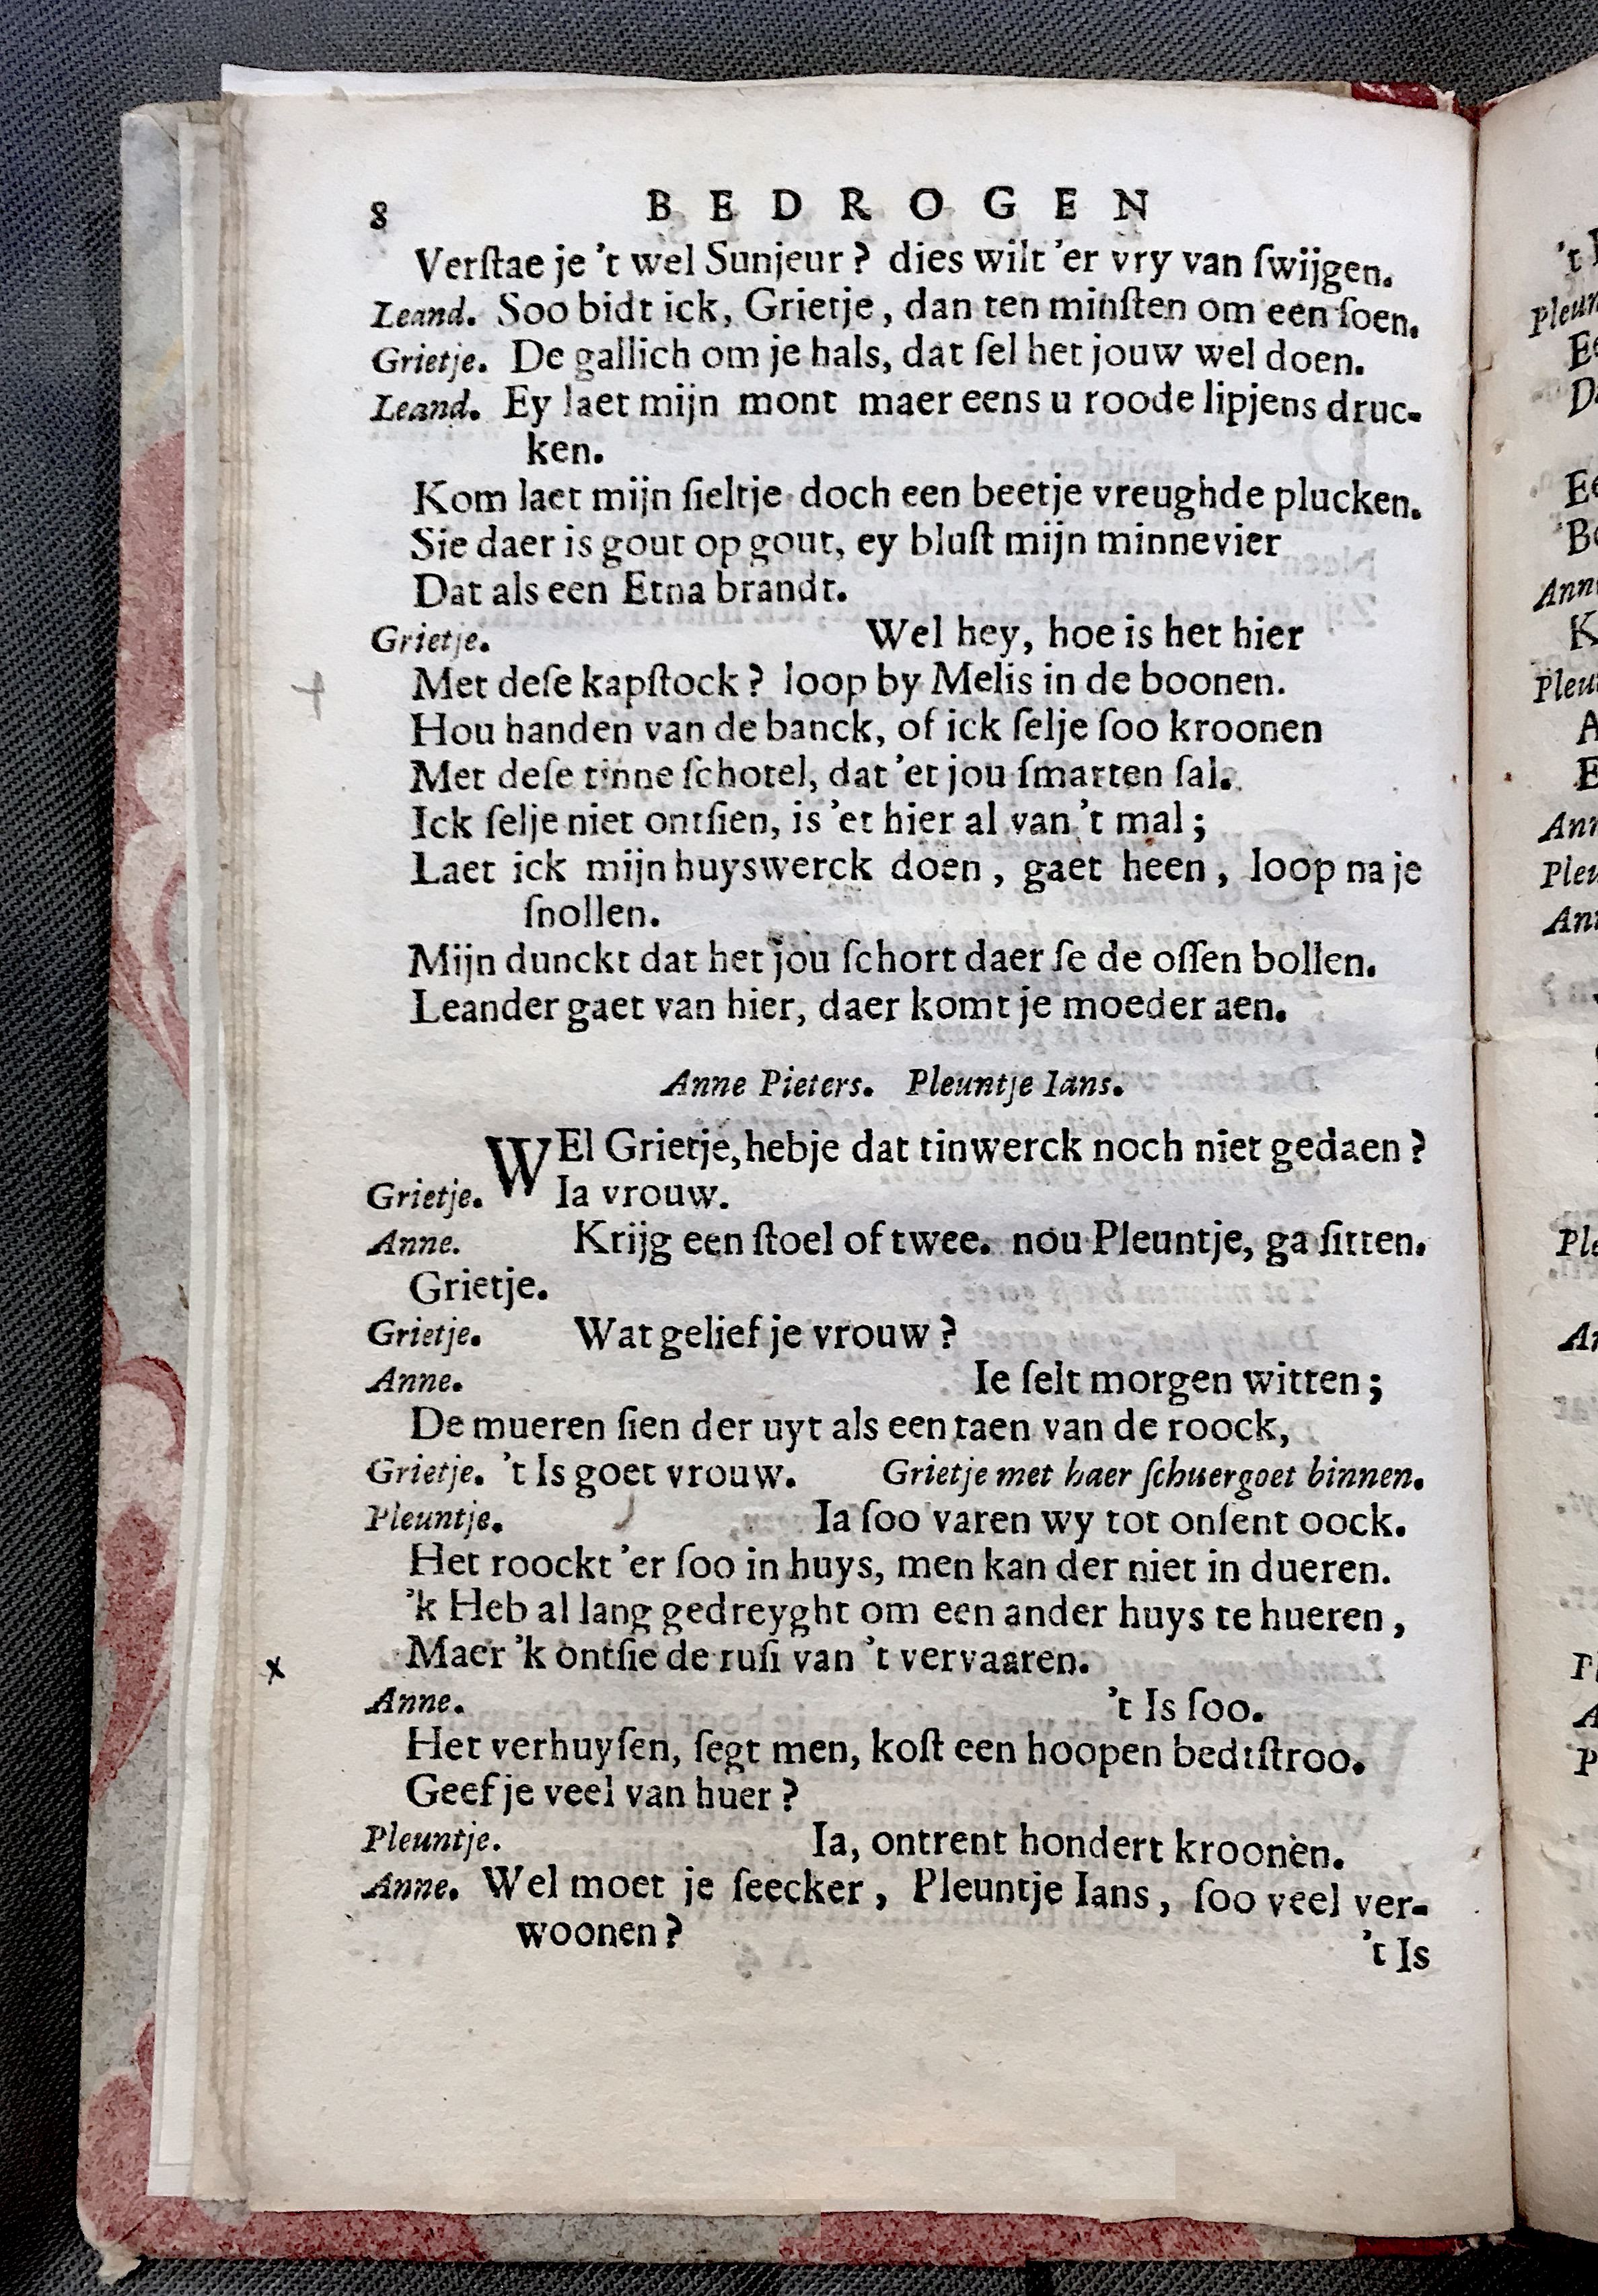 8 BEDROGEN
Verſtae je 't wel Sunjeur? dies wilt 'er vry van ſwijgen.
Leand. Soo bidt ick, Grietje, dan ten minſten om een ſoen.
Grietje. De gallich om je hals, dat ſel het jouw wel doen.
Leand. Ey laet mijn mont maer eens u roode lipjens druc-
ken.
Kom laet mijn ſieltje doch een beetje vreughde plucken.
Sie daer is gout op gout, ey bluſt mijn minnevier
Dat als een Etna brandt.
Grietje. Wel hey, hoe is het hier
Met deſe kapſtock? loop by Melis in de boonen.
Hou handen van de banck, of ick ſelje ſoo kroonen
Met deſe tinne ſchotel, dat 'et jou ſmarten ſal.
Ick ſelje niet ontſien, is 'et hier al van 't mal;
Laet ick mijn huyswerck doen, gaet heen, loop na je
ſnollen.
Mijn dunckt dat het jou ſchort daer ſe de oſſen bollen.
Leander gaet van hier, daer komt je moeder aen.
Anne Pieters. Pleuntje Ians.
WEl Grietje, hebje dat tinwerck noch niet gedaen?
Grietje. Ia vrouw.
Anne. Krijg een ſtoel of twee. nou Pleuntje, ga ſitten.
Grietje.
Grietje. Wat gelief je vrouw?
Anne. Ie ſelt morgen witten;
De mueren ſien der uyt als een taen van de roock,
Grietje. 't Is goet vrouw. Grietje met haer ſchuergoet binnen.
Pleuntje. Ia ſoo varen wy tot onſent oock.
Het roockt 'er ſoo in huys, men kan der niet in dueren.
'k Heb al lang gedreyght om een ander huys te hueren,
Maer 'k ontſie de ruſi van 't vervaaren.
Anne. 't Is ſoo.
Het verhuyſen, ſegt men, koſt een hoopen bedtſtroo.
Geef je veel van huer?
Pleuntje. Ia, ontrent hondert kroonen.
Anne. Wel moet je ſeecker, Pleuntje Ians, ſoo veel ver-
woonen?
't Is